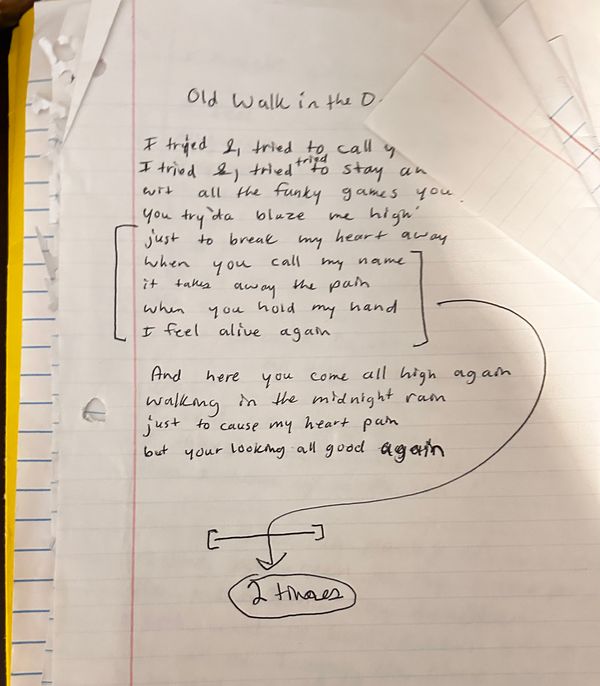 Old Walk in the
I tried &, tried to call
I tried &, tried tried to stay
wit all the funky games you
you try'da blaze me high
just to break my heart away
when you call my name
it takes away the pain
when you hold my hand
I feel alive again
And here you come all high again
walking in the midnight rain
just to cause my heart pain
but your looking all good again
2 times